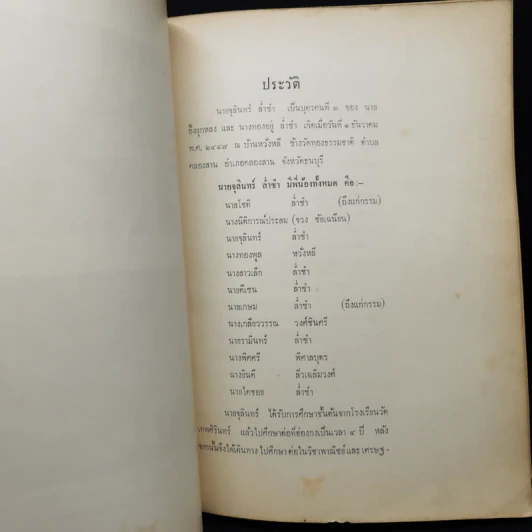 ประวัติ
นายจุลินทร์ ล่ำซำ เป็นบุตรคนที่ ๓ ของ นาย
อึ้งยุกหลง และ นางทองอยู่ ล่ำซำ เกิดเมื่อวันที่ ๑ ธันวาคม
พ.ศ. ๒๔๔๗ ณ บ้านหวั่งหลี ข้างวัดทองธรรมชาติ ตำบล
คลองสาน อำเภอคลองสาน จังหวัดธนบุรี
นายจุลินทร์ ล่ำซำ มีพี่น้องทั้งหมด คือ:–
นายโชติ ล่ำซำ (ถึงแก่กรรม)
นางนิติการณ์ประสม (จวง ชัยเฉนียน)
นายจุลินทร์ ล่ำซำ
นางทองพูล หวั่งหลี
นางสาวเล็ก ล่ำซำ
นายคีเซน ล่ำซำ
นายเกษม ล่ำซำ (ถึงแก่กรรม)
นางเกลียววรรณ วงศ์ชินศรี
นายรามินทร์ ล่ำซำ
นางพิศศรี พิศาลบุตร
นางยินดี ลิ่วเฉลิมวงศ์
นายโคชอย ล่ำซำ
นายจุลินทร์ ได้รับการศึกษาชั้นต้นจากโรงเรียนวัด
เทพศิรินทร์ แล้วไปศึกษาต่อที่ฮ่องกงเป็นเวลา ๔ ปี หลัง
จากนั้นจึงได้เดินทางไปศึกษาต่อในวิชาพาณิชย์และเศรษฐ-